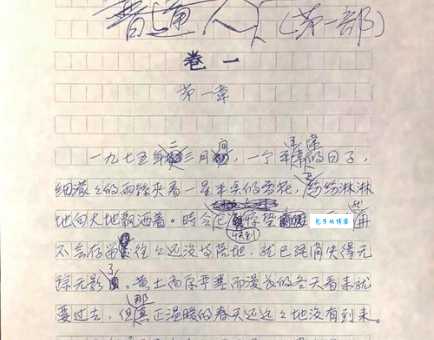 普通人（第一部）
卷一
第一章
一九七五年二三月间，一个平平常常的日子，
细濛濛的雨丝夹着一星半点的雪花，纷纷淋淋
地向大地飘洒着。时令已快到惊蛰 再
不会存留，往往还没等落地，就已经消失得无
踪无影了。黄土高原严寒而漫长的冬天看来就
要过去，但那真正温暖的春天还远远地没有到来。